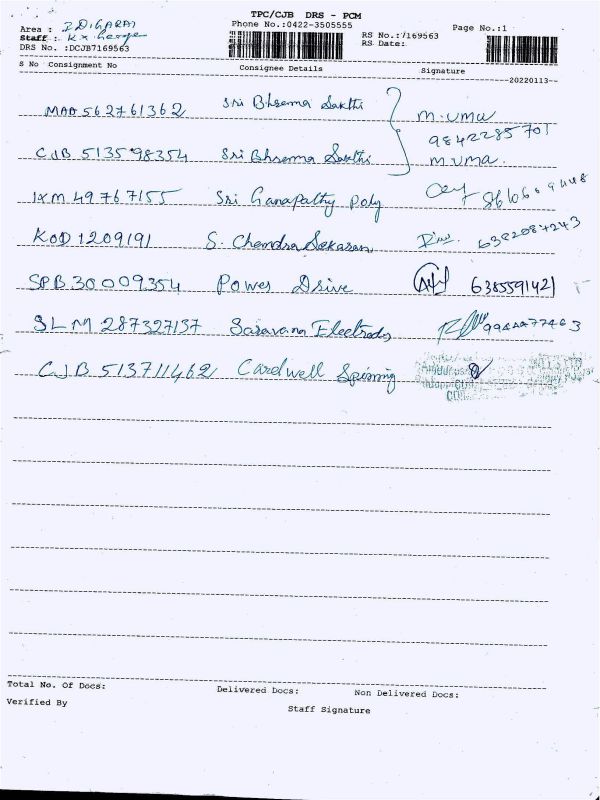 TPC/CJB DRS - PCM
Area : Phone No.:0422-3505555 Page No.:1
Staff : RS No.:/169563
DRS No. :DCJB7169563 RS Date:
S No Consignment No Consignee Details Signature
--20220113--
MAA 562761362 Sri Bheema Sakthi M.UMA
9842285701
CJB 513598354 Sri Bheema Sakthi M.UMA.
IXM 49767155 Sri Ganapathy Poly
KOD 1209191 S. Chandra Sekaran 6382087243
SPB 30009354 Power Drive 6385591421
SLM 287327137 Saravana Electrodes 9944477463
CJB 513711462 Cardwell Spinning
Total No. Of Docs: Delivered Docs: Non Delivered Docs:
Verified By Staff Signature